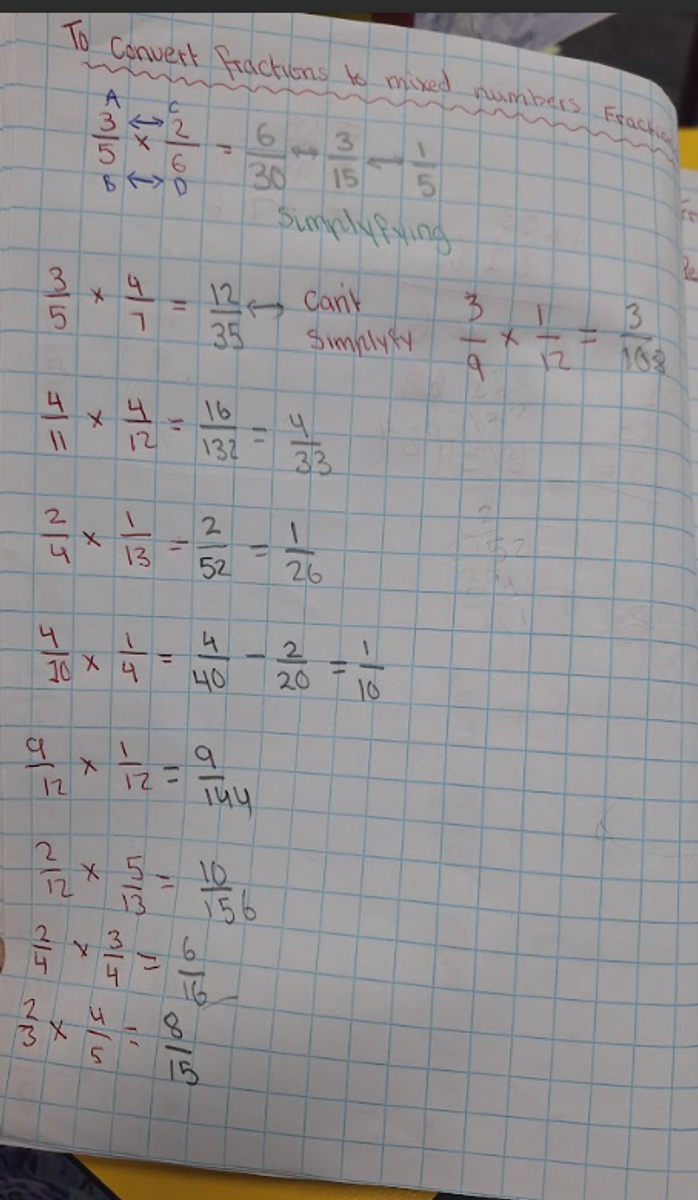 To Convert fractions to mixed numbers Fraction
A C
3/5 × 2/6 = 6/30 ↔ 3/15 ↔ 1/5
B ↔ D
Simplyfying
3/5 × 4/7 = 12/35 ↔ Can't Simplyfy
3/9 × 1/12 = 3/108
4/11 × 4/12 = 16/132 = 4/33
2/4 × 1/13 = 2/52 = 1/26
4/10 × 1/4 = 4/40 - 2/20 = 1/10
9/12 × 1/12 = 9/144
2/12 × 5/13 = 10/156
2/4 × 3/4 = 6/16
2/3 × 4/5 = 8/15